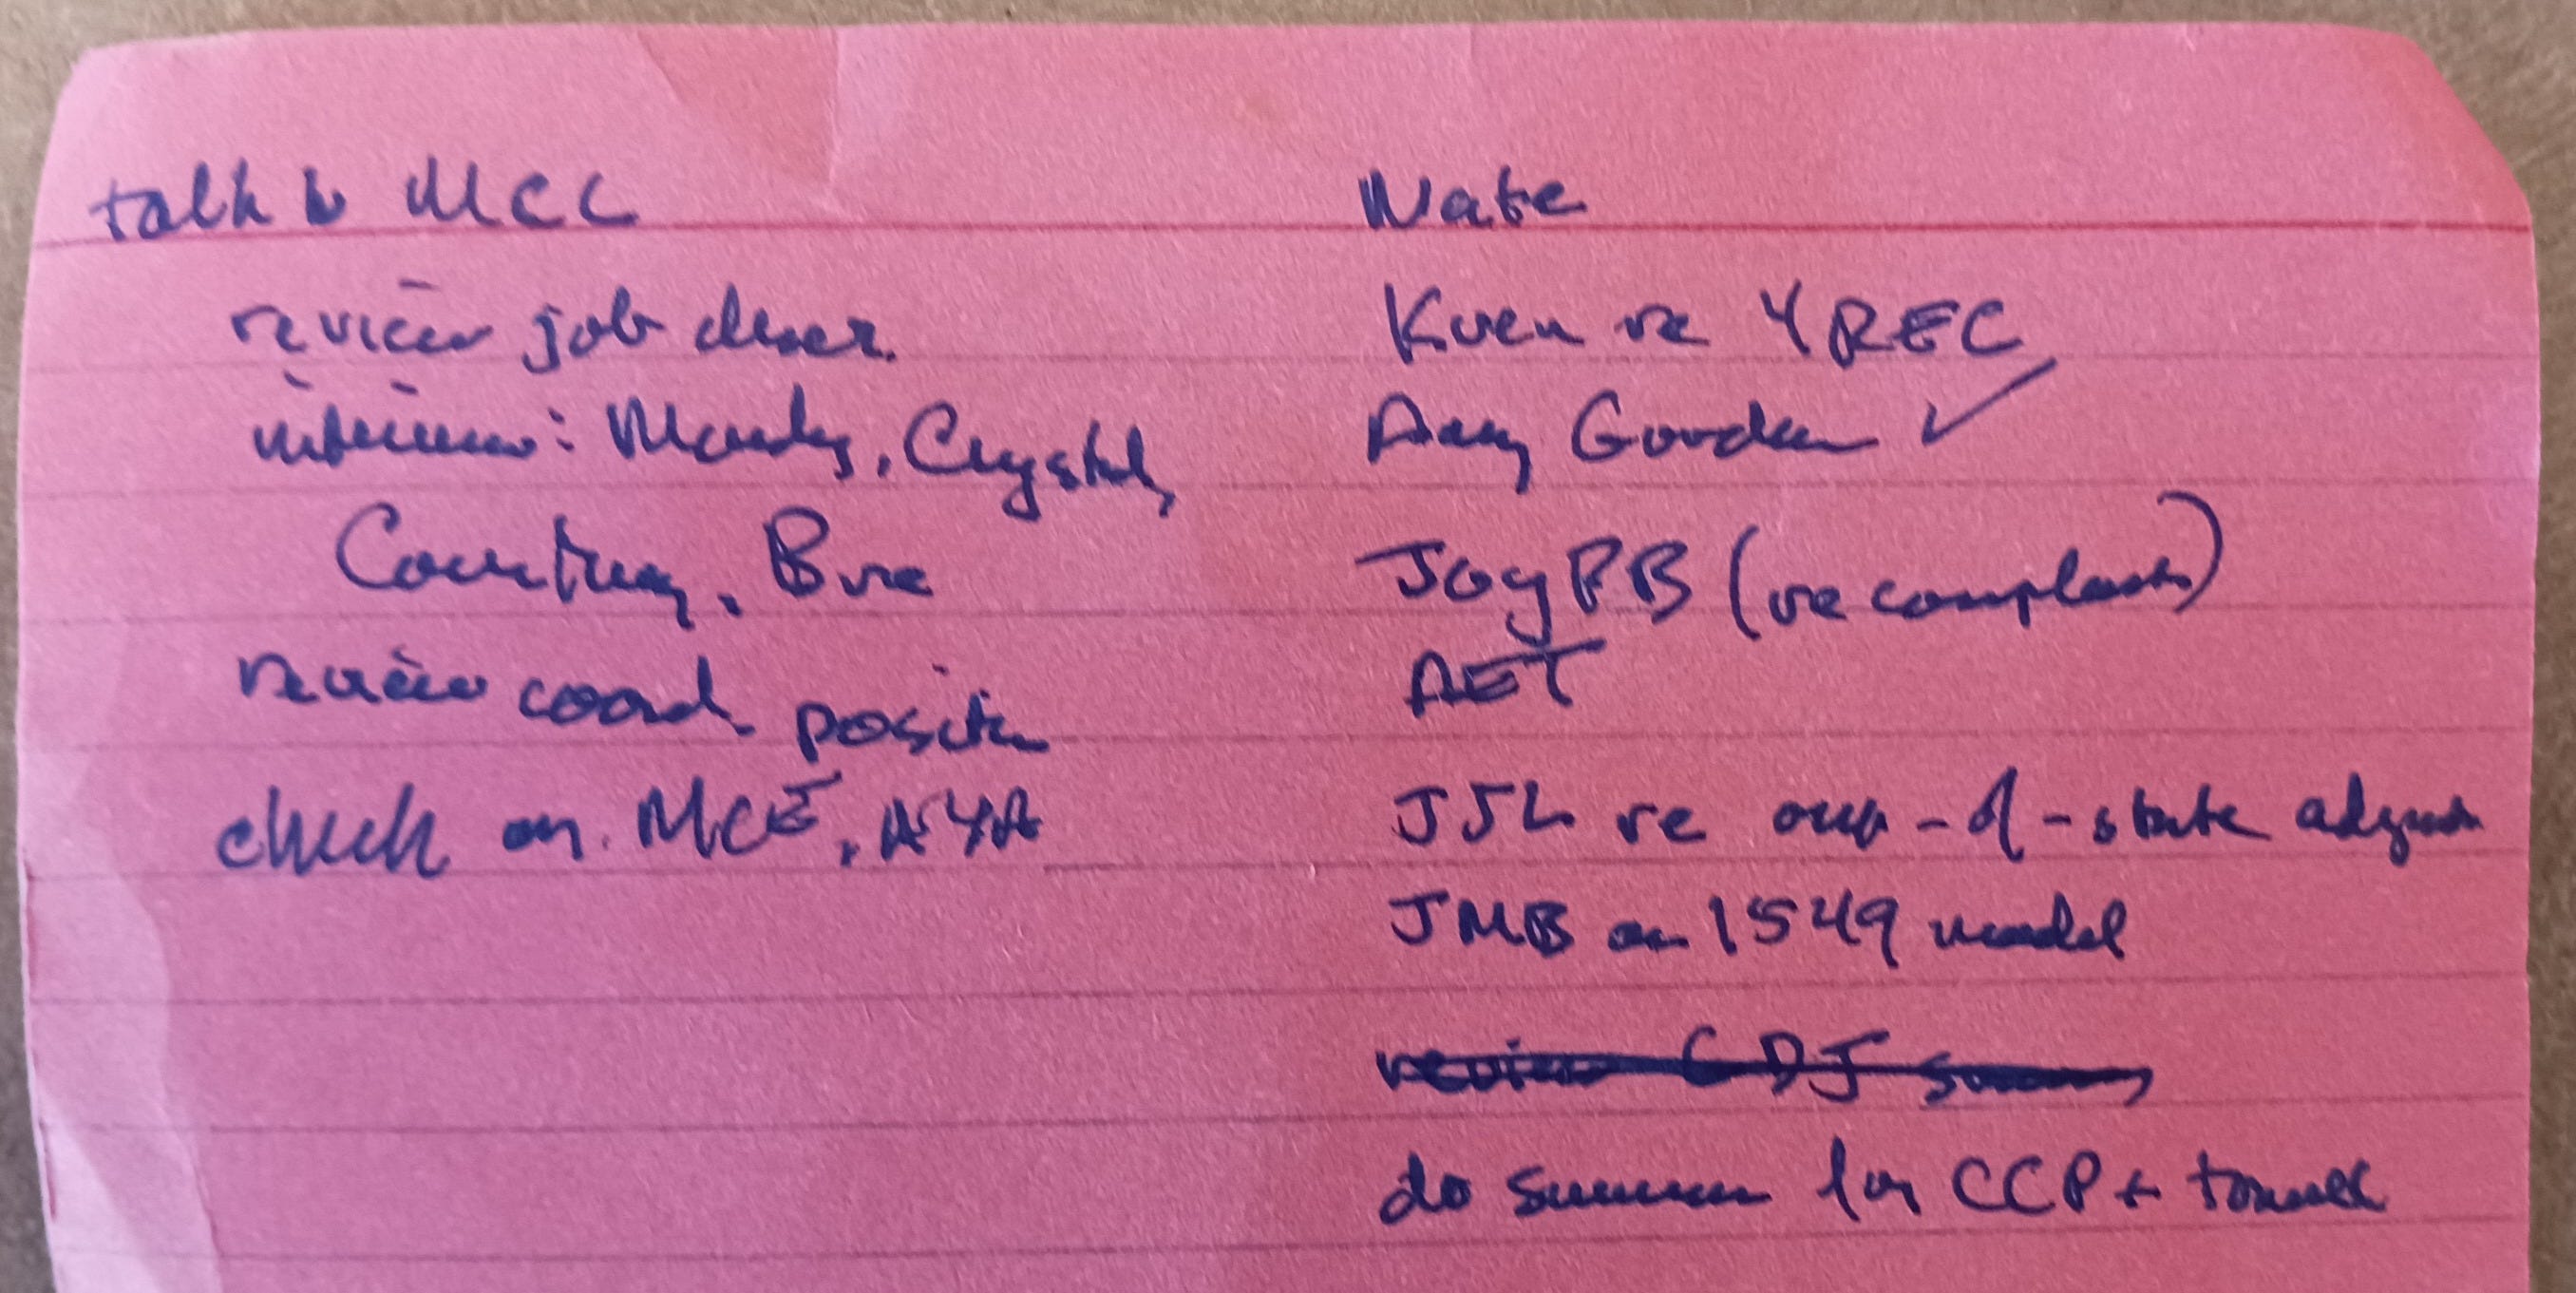 talk to MCC
review job descr.
interviews: Mandy, Crystal,
Courtney, Bre
review coord. position
check on MCE, AYA
Nate
Kven re YREC
Amy Gordon ✓
Joy PB (re complaints)
AET
JJL re out-of-state
JMB on 1549 model
review CDJ
do summer for CCP +